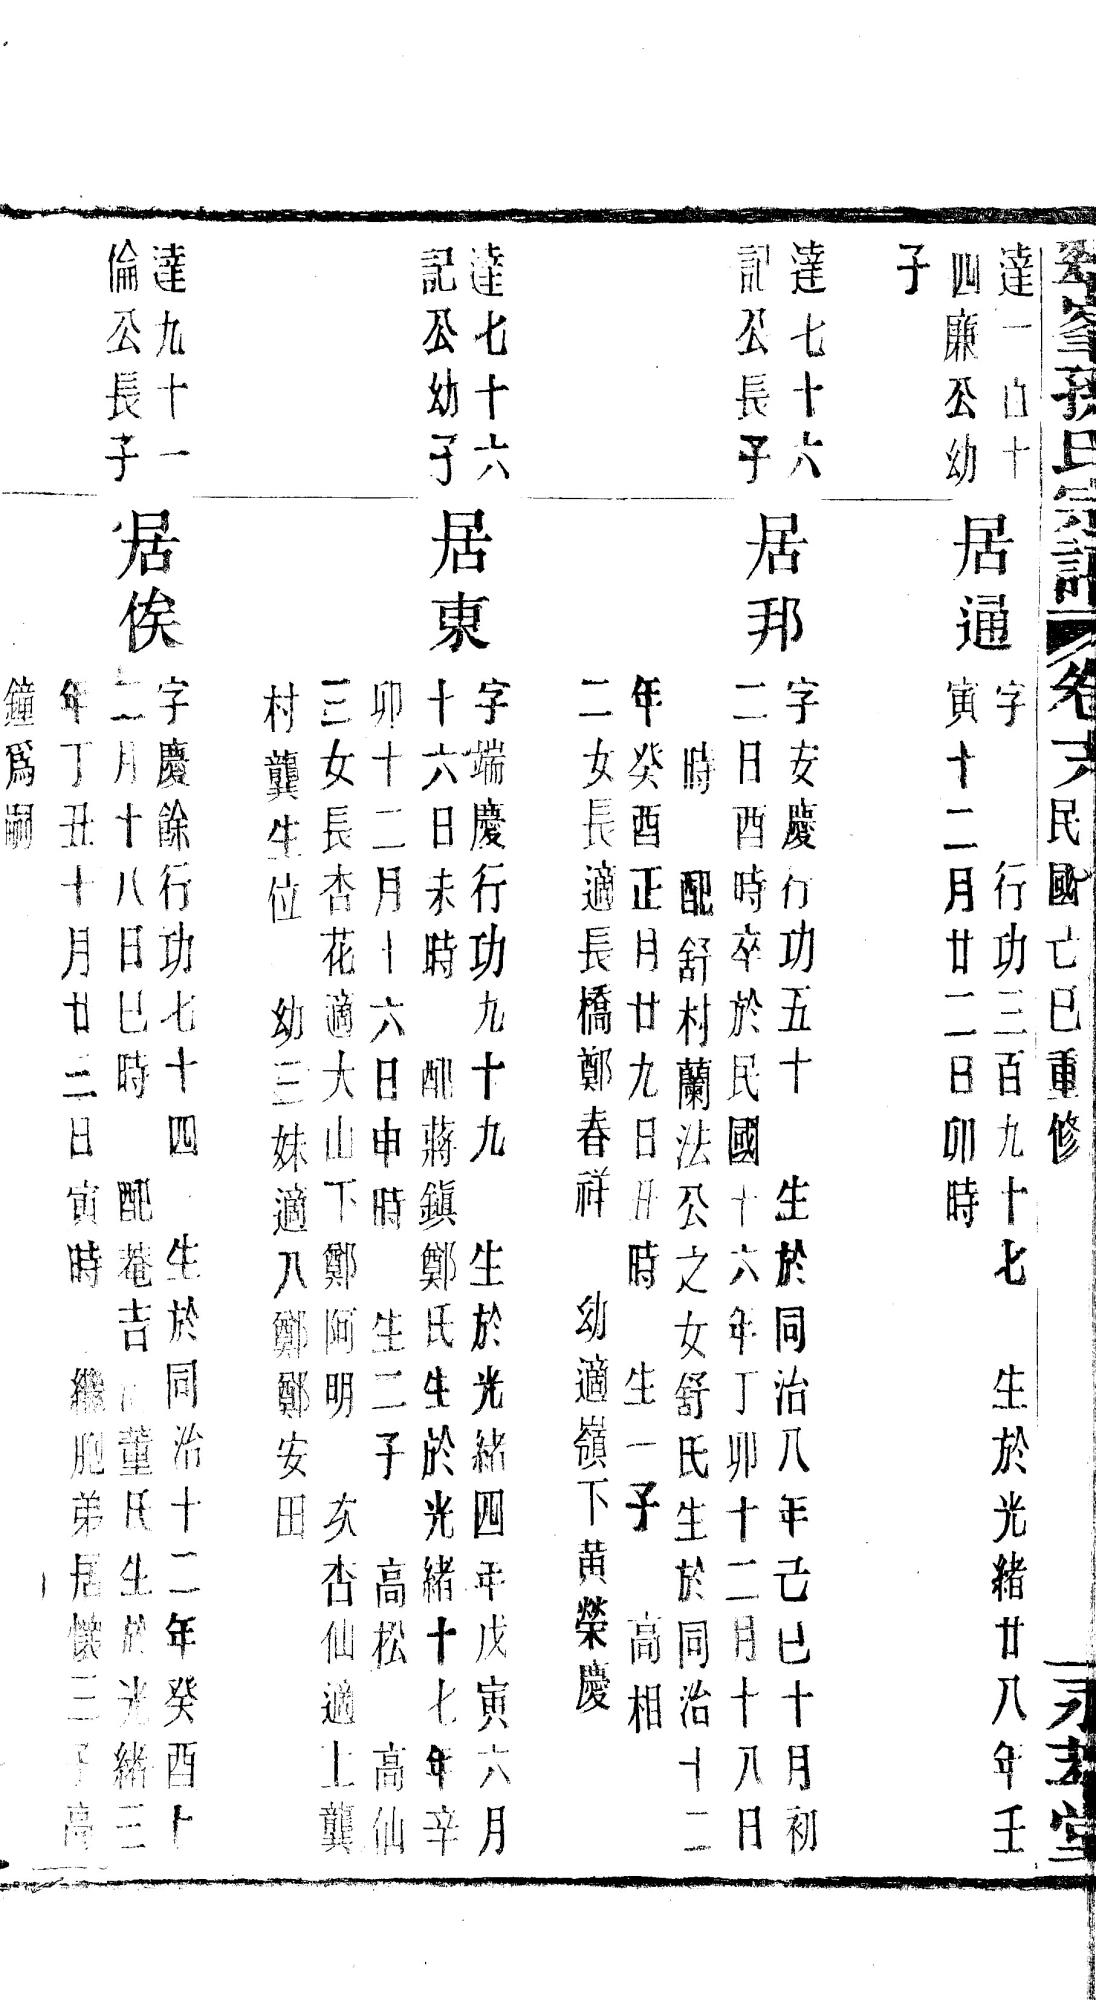 氏宗譜 卷 民國亡巳重修 堂
達一百十
四廉公幼
子
居通
字 行功三百九十七 生於光緒廿八年壬
寅十二月廿二日卯時
達七十六
記公長子
居邦
字安慶行功五十 生於同治八年己巳十月初
二日酉時卒於民國十六年丁卯十二月十八日
時 配舒村蘭法公之女舒氏生於同治十二
年癸酉正月廿九日丑時 生一子 高相
二女長適長橋鄭春祥 幼適嶺下黄榮慶
達七十六
記公幼子
居東
字端慶行功九十九 生於光緒四年戊寅六月
十六日未時 配蔣鎮鄭氏生於光緒十七年辛
卯十二月十六日申時 生二子 高松 高仙
三女長杏花適大山下鄭阿明 次杏仙適上龔
村龔生位 幼三妹適八鄭鄭安田
達九十一
倫公長子
居俟
字慶餘行功七十四 生於同治十二年癸酉十
二月十八日巳時 配菴吉 董氏生於光緒三
年丁丑十月廿三日寅時 繼胞弟居懷三子高
鐘爲嗣